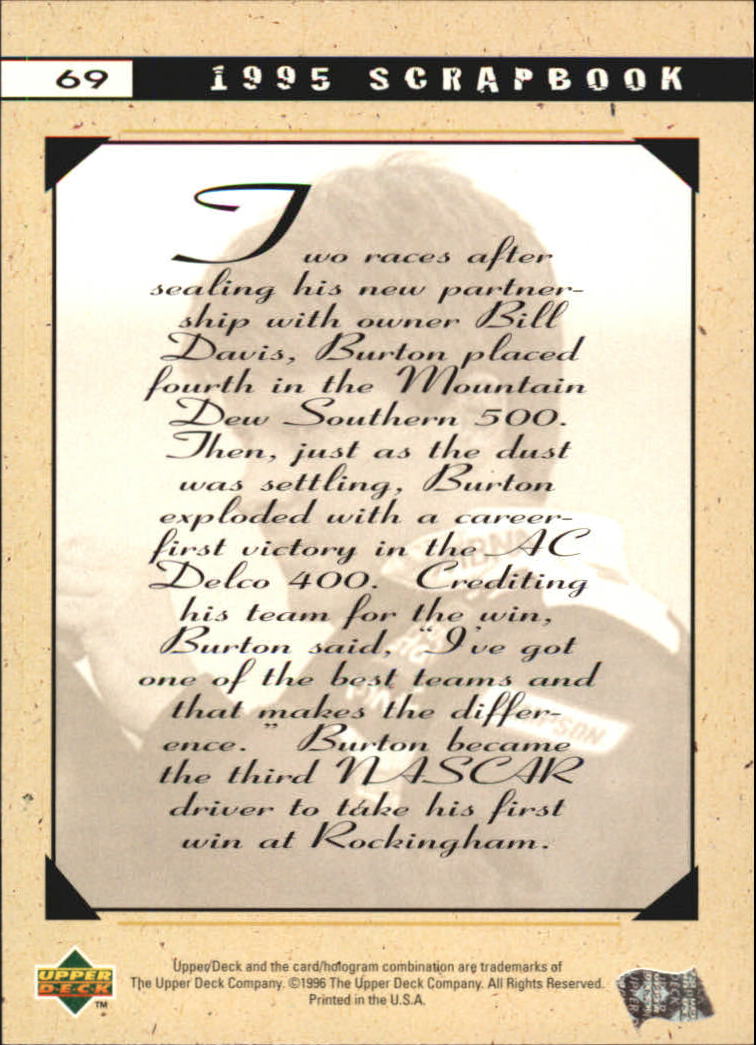 69 1995 SCRAPBOOK
Two races after
sealing his new partner-
ship with owner Bill
Davis, Burton placed
fourth in the Mountain
Dew Southern 500.
Then, just as the dust
was settling, Burton
exploded with a career-
first victory in the AC
Delco 400. Crediting
his team for the win,
Burton said, "I've got
one of the best teams and
that makes the differ-
ence." Burton became
the third NASCAR
driver to take his first
win at Rockingham.
UPPER
DECK
TM
Upper Deck and the card/hologram combination are trademarks of
The Upper Deck Company. ©1996 The Upper Deck Company. All Rights Reserved.
Printed in the U.S.A.